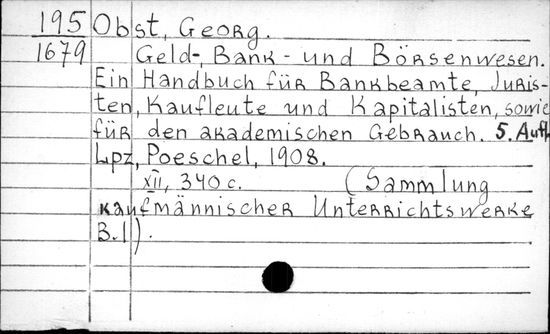 195 Obst, Georg.
1679 Geld-, Bank- und Börsenwesen.
Ein Handbuch für Bankbeamte, Juris-
ten, Kaufleute und Kapitalisten, sowie
für den akademischen Gebrauch. 5. Aufl.
Lpz, Poeschel, 1908.
XII, 340 c. (Sammlung
kaufmännischer Unterrichtswerke
B.1).